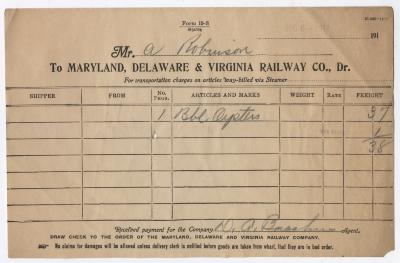 Form 18-S
191
Mr. A Robinson
To MARYLAND, DELAWARE & VIRGINIA RAILWAY CO., Dr.
For transportation charges on articles way-billed via Steamer
SHIPPER FROM No. PKGS. ARTICLES AND MARKS WEIGHT RATE FREIGHT
1 Bbl. Oysters 37
1
38
Received payment for the Company Agent.
DRAW CHECK TO THE ORDER OF THE MARYLAND, DELAWARE AND VIRGINIA RAILWAY COMPANY.
No claims for damages will be allowed unless delivery clerk is notified before goods are taken from wharf, that they are in bad order.